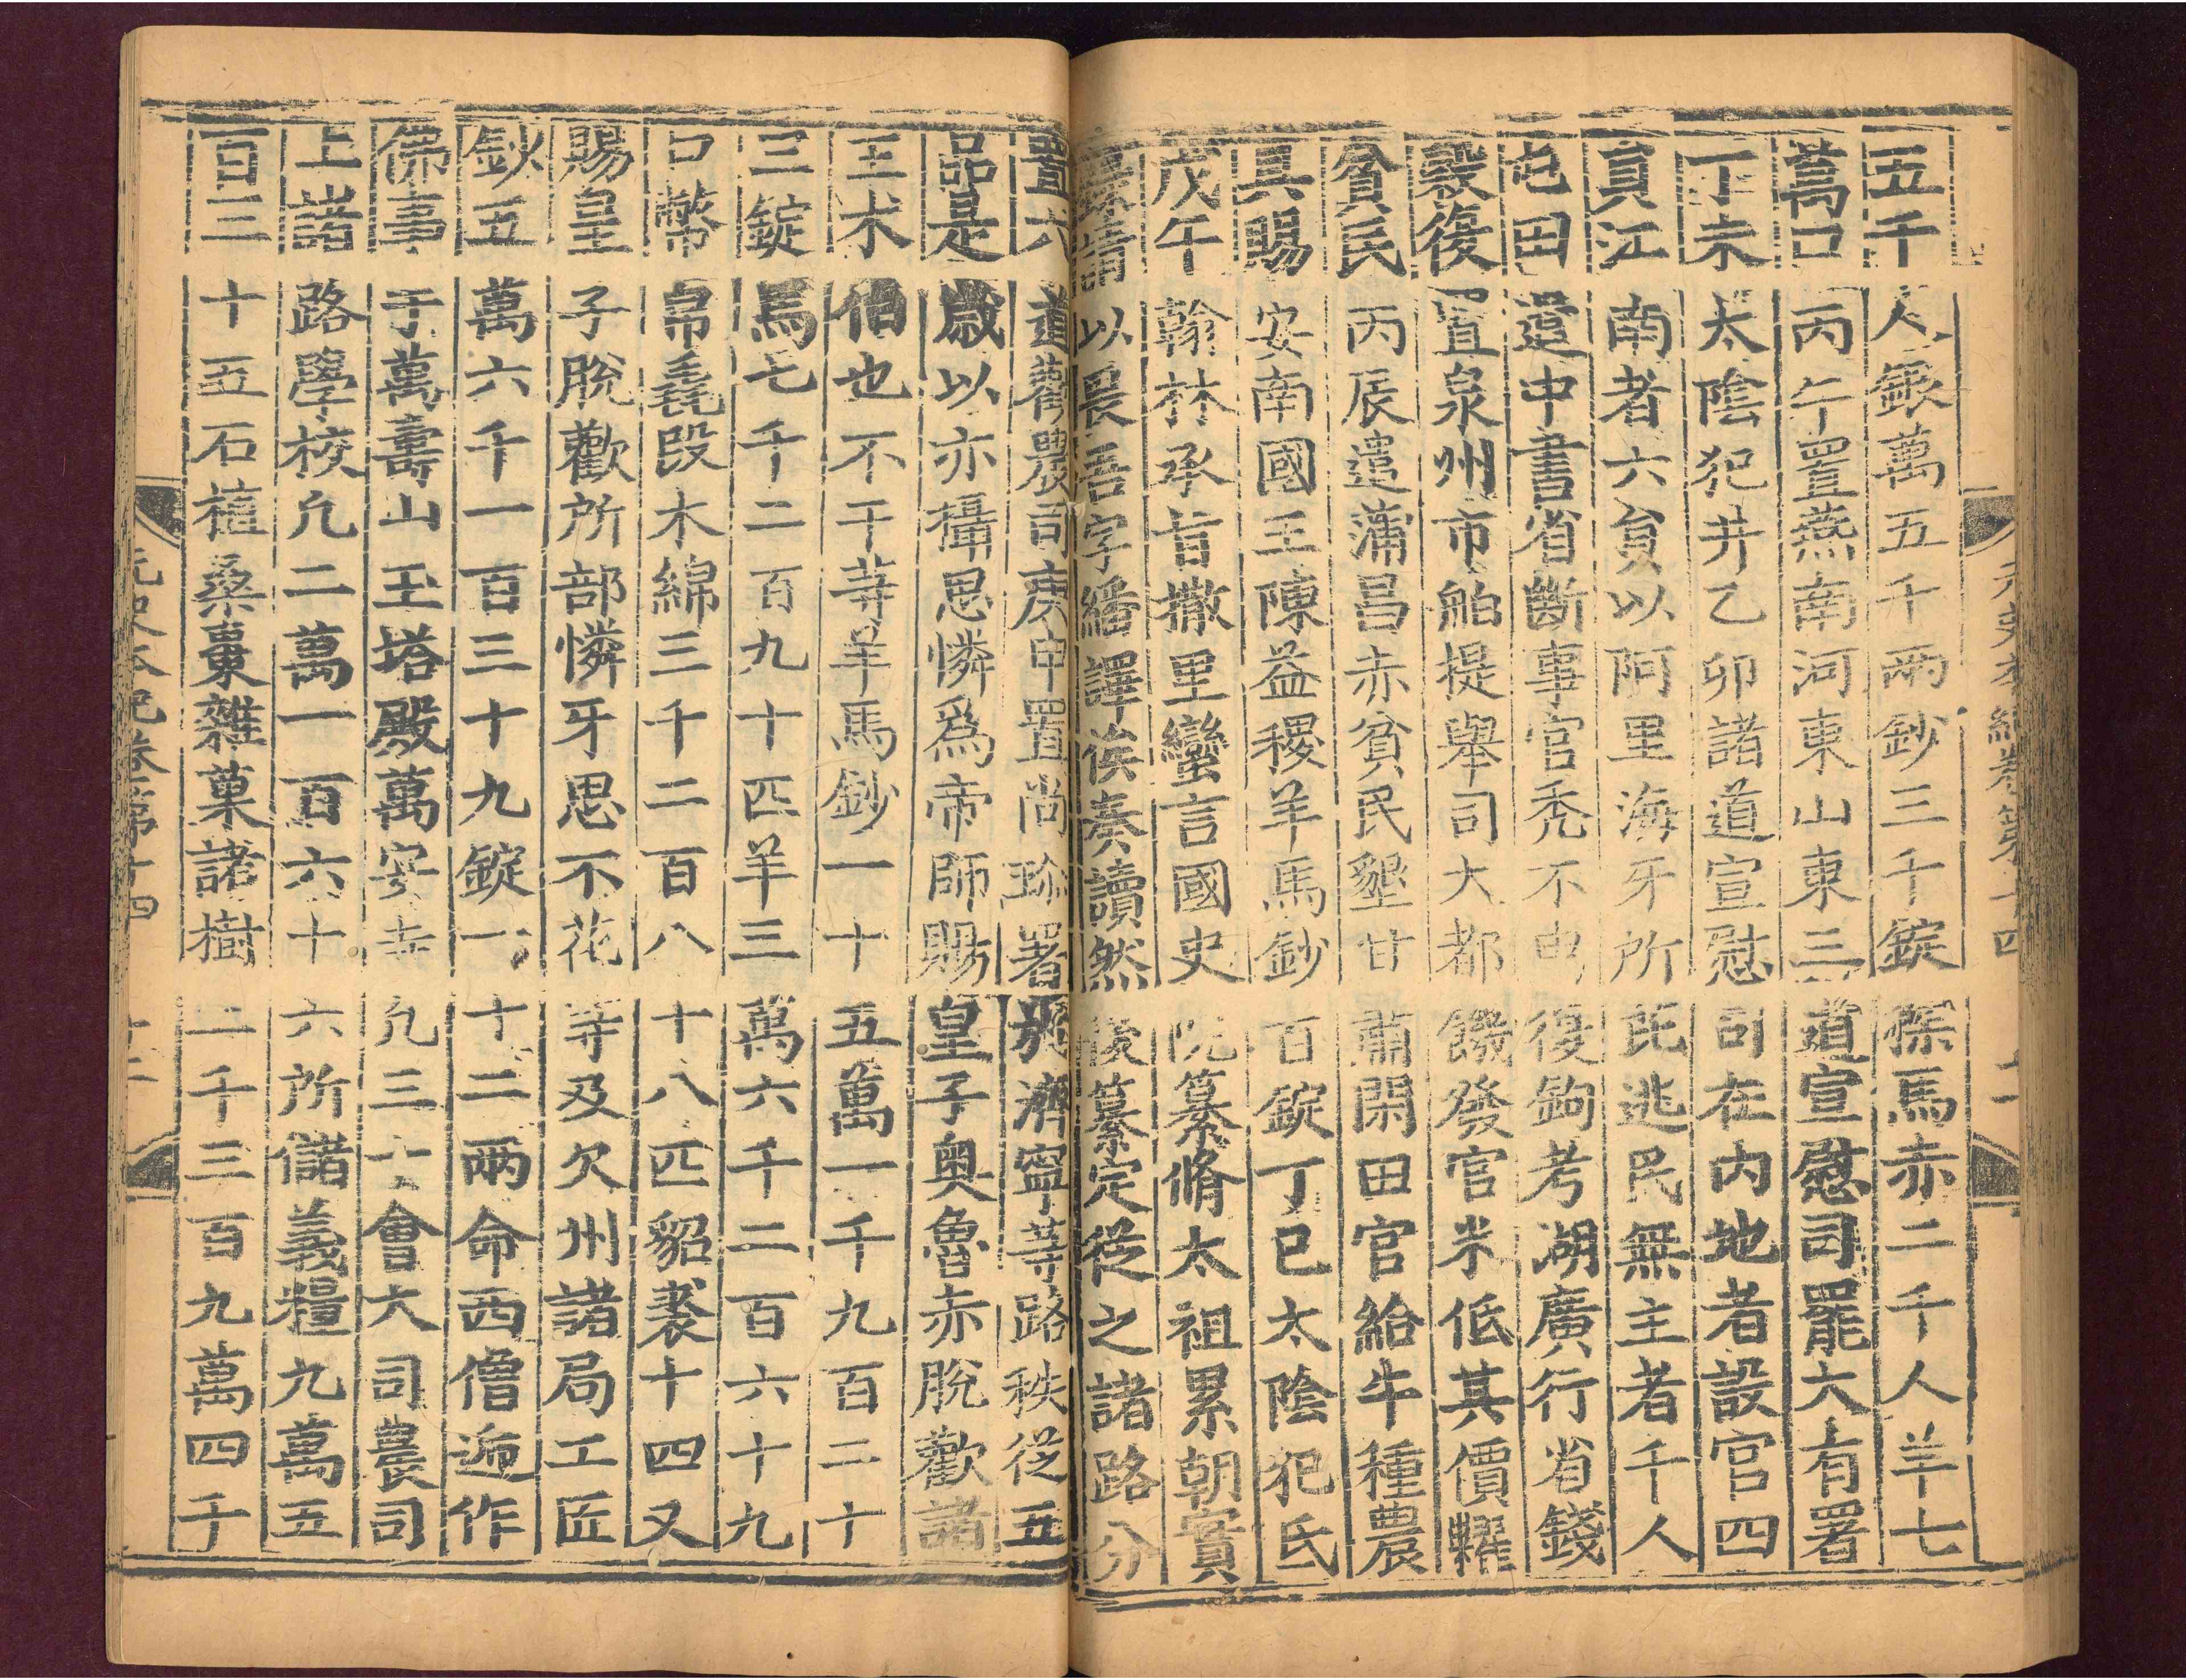 五千人銀萬五千兩鈔三千錠探馬赤二千人羊七
萬口丙午置燕南河東山東三道宣慰司罷大有署
丁未太陰犯井乙卯諸道宣慰司在內地者設官四
員江南者六員以阿里海牙所芘逃民無主者千人
屯田遣中書省斷事官禿不申復鉤考湖廣行省錢
穀復置泉州市舶提舉司大都饑發官米低其價糶
貧民丙辰遣蒲昌赤貧民墾甘肅閑田官給牛種農
具賜安南國王陳益稷羊馬鈔百錠丁巳太陰犯氐
戊午翰林承旨撒里蠻言國史院纂脩太祖累朝實
錄請以畏吾字繙譯俟奏讀然後纂定從之諸路分
置六道勸農司庚申置尚珍署於濟寧等路秩從五
品是歲以亦攝思憐爲帝師賜皇子奧魯赤脫歡諸
王术伯也不干等羊馬鈔一十五萬一千九百二十
三錠馬七千二百九十匹羊三萬六千二百六十九
口幣帛毳段木綿三千二百八十八匹貂裘十四又
賜皇子脫歡所部憐牙思不花等及欠州諸局工匠
鈔五萬六千一百三十九錠一十二兩命西僧遞作
佛事于萬壽山玉塔殿萬安寺凡三十會大司農司
上諸路學校凡二萬一百六十六所儲義糧九萬五
百三十五石植桑棗雜菓諸樹二千三百九萬四千
元史本紀卷第十四
十一
元史本紀卷第十四
十二